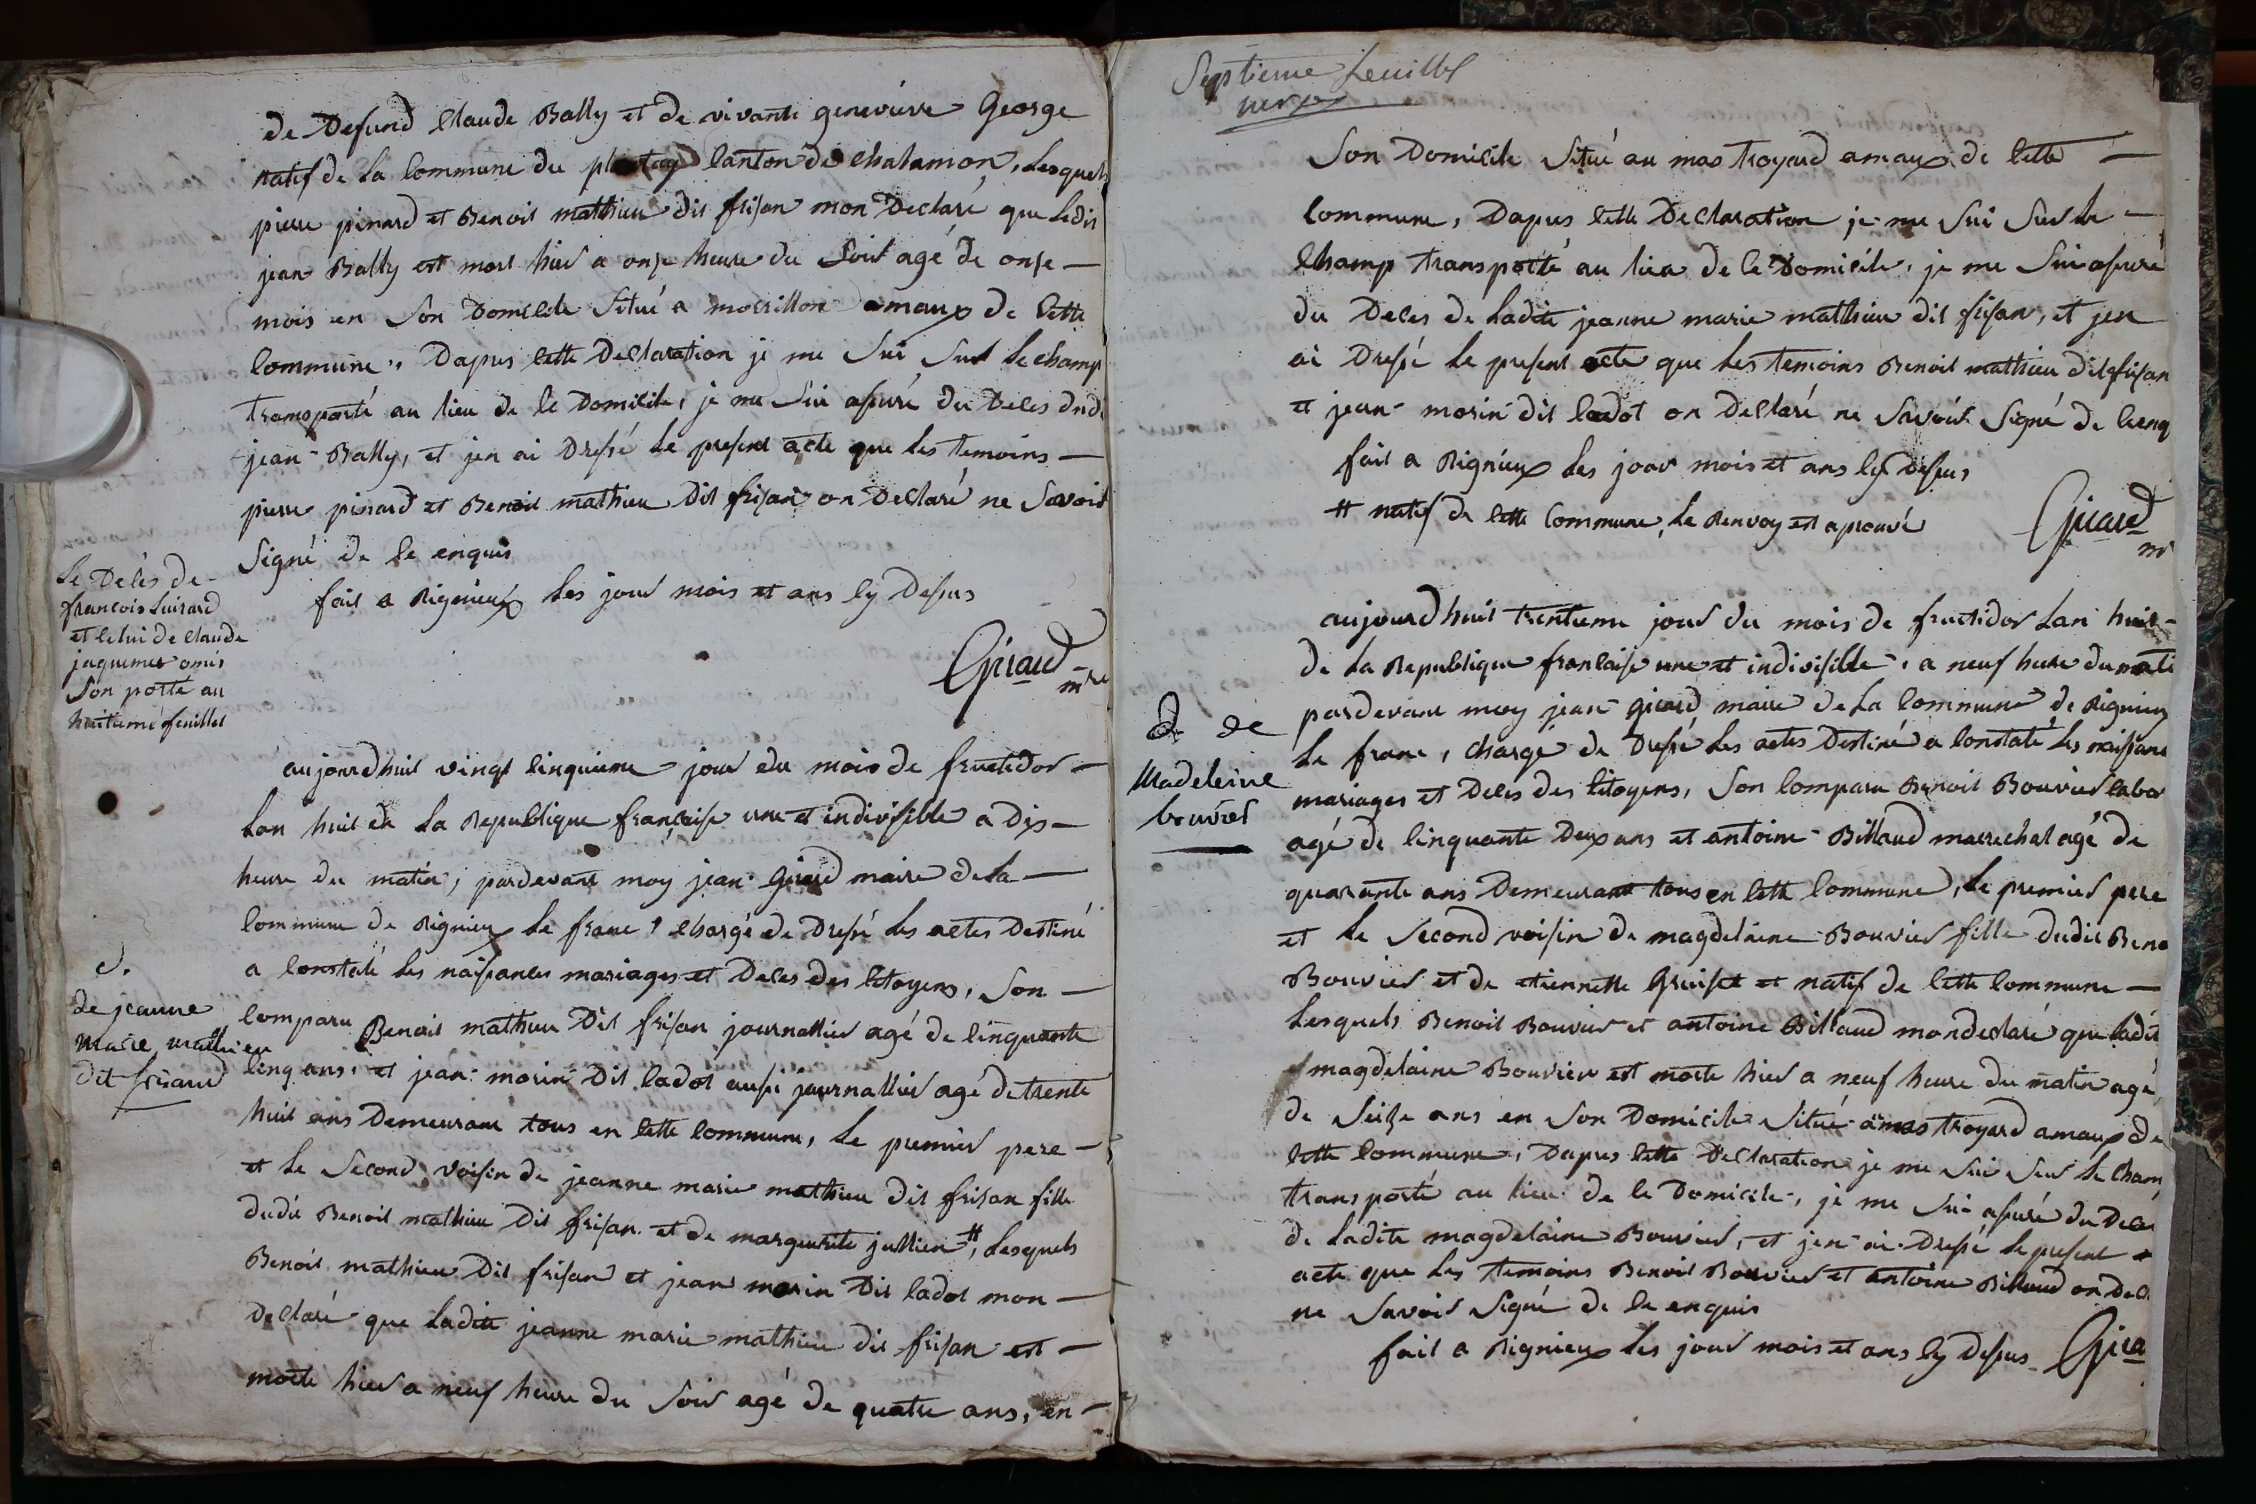 de Defund Claude Bally et de vivante genevieve George
natif de la Commune du plantay Canton de Chalamon, Lesquels
pierre pinard et Benoit mathieu dit frisan mon Declaré que Ledit
jean Bally est mort hier a onse heure du Soir agé de onse
mois en Son Domicile Situé a morillon amaux de Cette
Commune. Dapres Cette Declaration je me Sui Sur Le champ
transporté au lieu de Ce Domicile, je me Sui assuré du Deces dud
jean Bally, et jen ai Dressé Le present acte que Les temoins
pierre pinard et Benoit mathieu Dit frisan on Declaré ne Savoir
Signé de Ce enquis
fait a Rignieux Les jour mois et ans Cy Dessus
Girard
mre
Le Delés de
francois Luirard
et Celui de Claude
jaquemet omis
Son porté au
huitieme feuillet
aujourdhuit vingt Cinquieme jour du mois de fructidor
Lan huit de La Republique française une et indivisible a Dix
heure du matin, pardevant moy jean Girard maire de La
Commune de Rignieux Le franc, Chargé de Dressé Les actes Destiné
a Constaté Les naissances mariages et Deces des Citoyens, Son
D.
de jeanne
Marie mathieu
dit frisand
Comparu Benoit mathieu Dit frisan journallier agé de Cinquante
Cinq ans, et jean morin Dit Cadot aussi journallier agé de trente
huit ans Demeurant tous en Cette Commune, Le premier pere
et Le Second Voisin de jeanne marie mathieu dit frisan fille
dudit Benoit mathieu Dit frisan et de marguerite jullien #, Lesquels
Benoit mathieu Dit frisan et jean morin Dit Cadot mon
Declaré que Ladite jeanne marie mathieu dit frisan est
morte hier a neuf heure du Soir agé de quatre ans, en
Septieme feuillet
verso
Son Domicile Situé au mas troyard amaux de Cette
Commune, Dapres Cette Declaration je me Sui Sur Le
Champ transporté au lieu de Ce Domicile, je me Sui assuré
du Deces de Ladite jeanne marie mathieu dit frisan, et jen
ai Dressé Le present acte que Les temoins Benoit mathieu dit frisan
et jean morin dit Cadot on Declaré ne Savoir Signé de Ce enq
fait a Rignieux Les jour mois et ans Cy Dessus
# natif de Cette Commune, Le Renvoy est aprouvé
Girard
mr
aujourdhuit trentieme jour du mois de fructidor Lan huit
de La Republique française une et indivisible, a neuf heure du mati
pardevant moy jean Girard maire de La Commune de Rignieux
Le franc, Chargé de Dressé Les actes Destiné a Constaté Les naissance
D de
Madeleine
bouvier
mariages et Deces des Citoyens, Son Comparu Benoit Bouvier Labor
agé de Cinquante Deux ans et antoine Billaud marechal agé de
quarante ans Demeurant tous en Cette Commune, Le premier pere
et Le Second voisin de magdelaine Bouvier fille dudit Beno
Bouvier et de etiennette et natif de Cette Commune
Lesquels Benoit Bouvier et antoine Billaud mon declaré que Ladit
magdelaine Bouvier est morte hier a neuf heure du matin agé
de Seize ans en Son Domicile Situé a mas troyard amaux de
Cette Commune, Dapres Cette Declaration je me Sui Sur Le Cham
transporté au lieu de Ce Domicile, je me Sui assuré du Deces
de Ladite magdelaine Bouvier, et jen ai Dressé Le present
acte que Les temoins Benoit Bouvier et antoine Billaud on Decl
ne Savoir Signé de Ce enquis
fait a Rignieux Les jour mois et ans Cy Dessus Gira